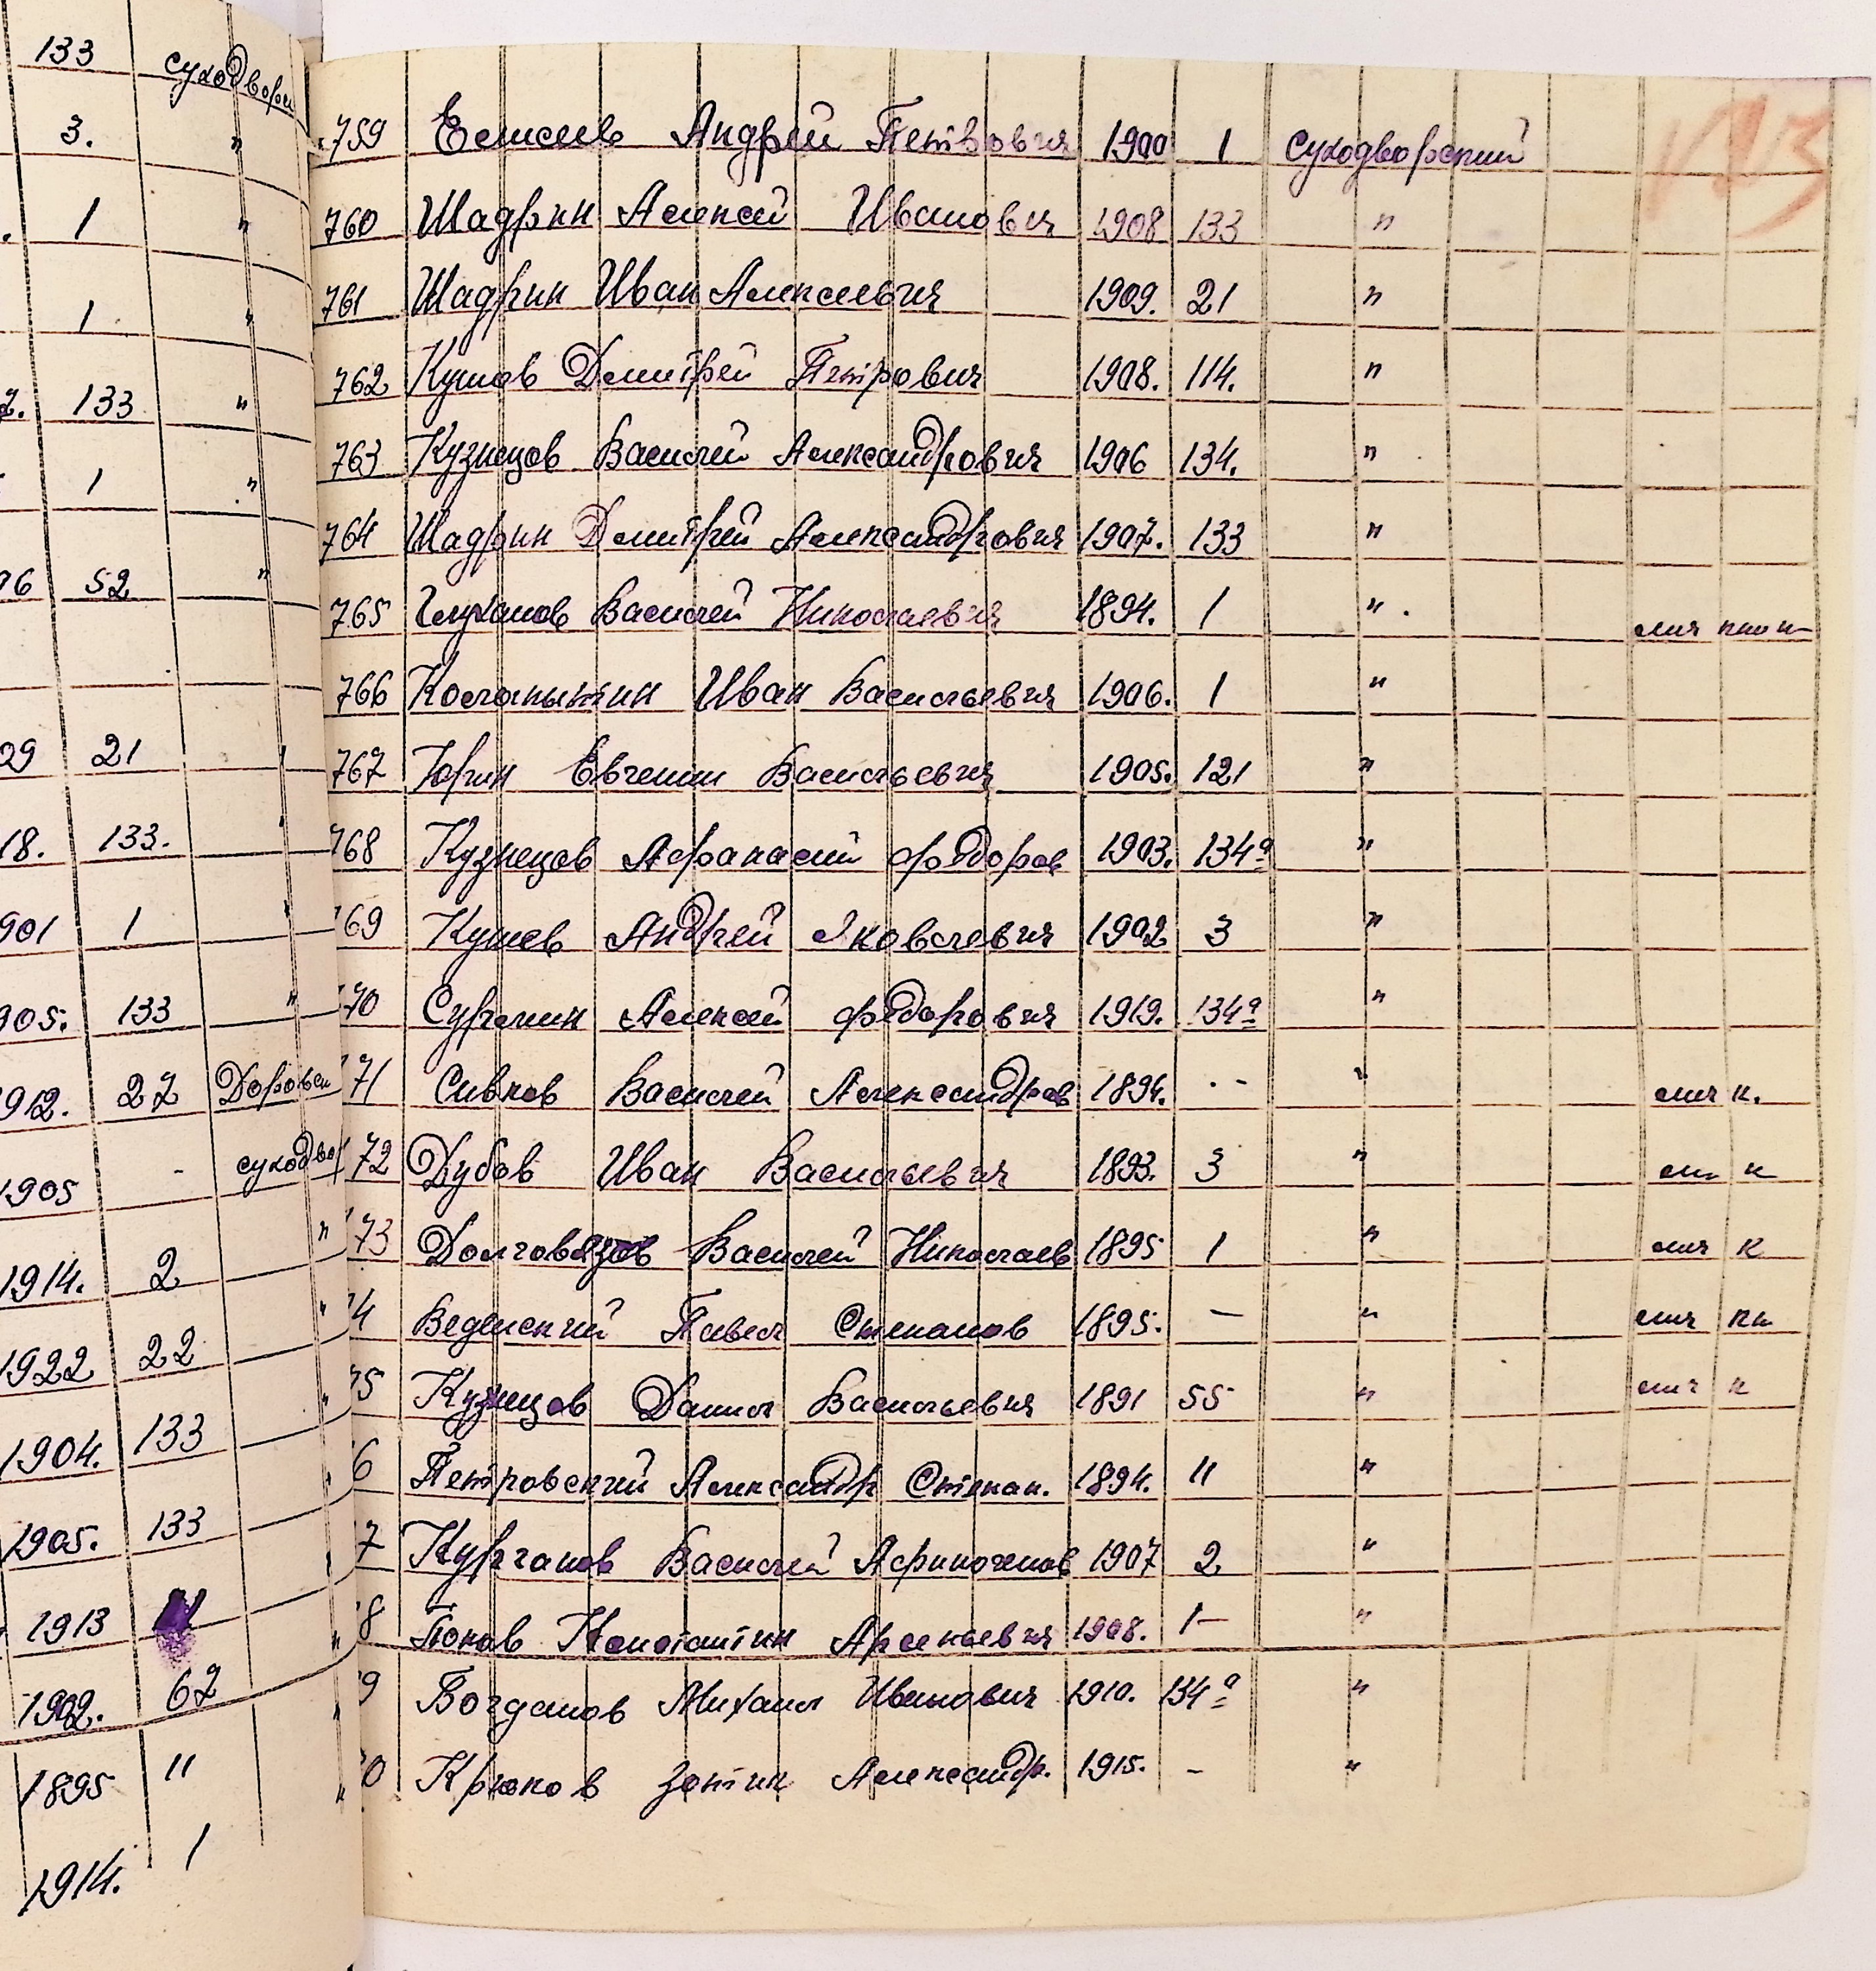 133 суходворск
3. "
1 "
1 "
133 "
1 "
52 "
21
18. 133.
901 1
905. 133 "
912. 27 Доровск
1905 - суходво
1914. 2 "
1922 22 "
1904. 133 "
1905. 133 "
1913 "
1902. 67 "
1895 11 "
1914. 1
123
759 Елисеев Андрей Петрович 1900 1 Суходворский
760 Шадрин Алексей Иванович 1908 133 "
761 Шадрин Иван Алексеевич 1909. 21 "
762 Кушов Дмитрей Петрович 1908. 114. "
763 Кузнецов Василей Александрович 1906 134. "
764 Шадрин Дмитрей Александрович 1907. 133 "
765 Глуханов Василей Николаевич 1894. 1 "
766 Колапытин Иван Васильевич 1906. 1 "
767 Юрин Евгении Васильевич 1905. 121 "
768 Кузнецов Афанасий Фёдоров 1903. 134а "
69 Кушев Андрей Яковлевич 1902 3 "
70 Сургенин Алексей Фёдорович 1919. 134а "
71 Сивков Василей Александров 1894. - " слч к.
72 Дубов Иван Васильевич 1893. 3 " к
73 Долговязов Василей Николаев 1895 1 " слч к
4 Веденский Павел Степанов 1895. — " слч
5 Кузнецов Данил Васильевич 1891 55 " слч к
6 Петровский Александр Степан. 1894. 11 "
7 Курганов Василей Афиногенов 1907 2 "
8 Попов Констатин Арсеньевич 1908. 1- "
9 Богданов Михаил Иванович 1910. 134а "
0 Крюков Зотик Александр. 1915. - "